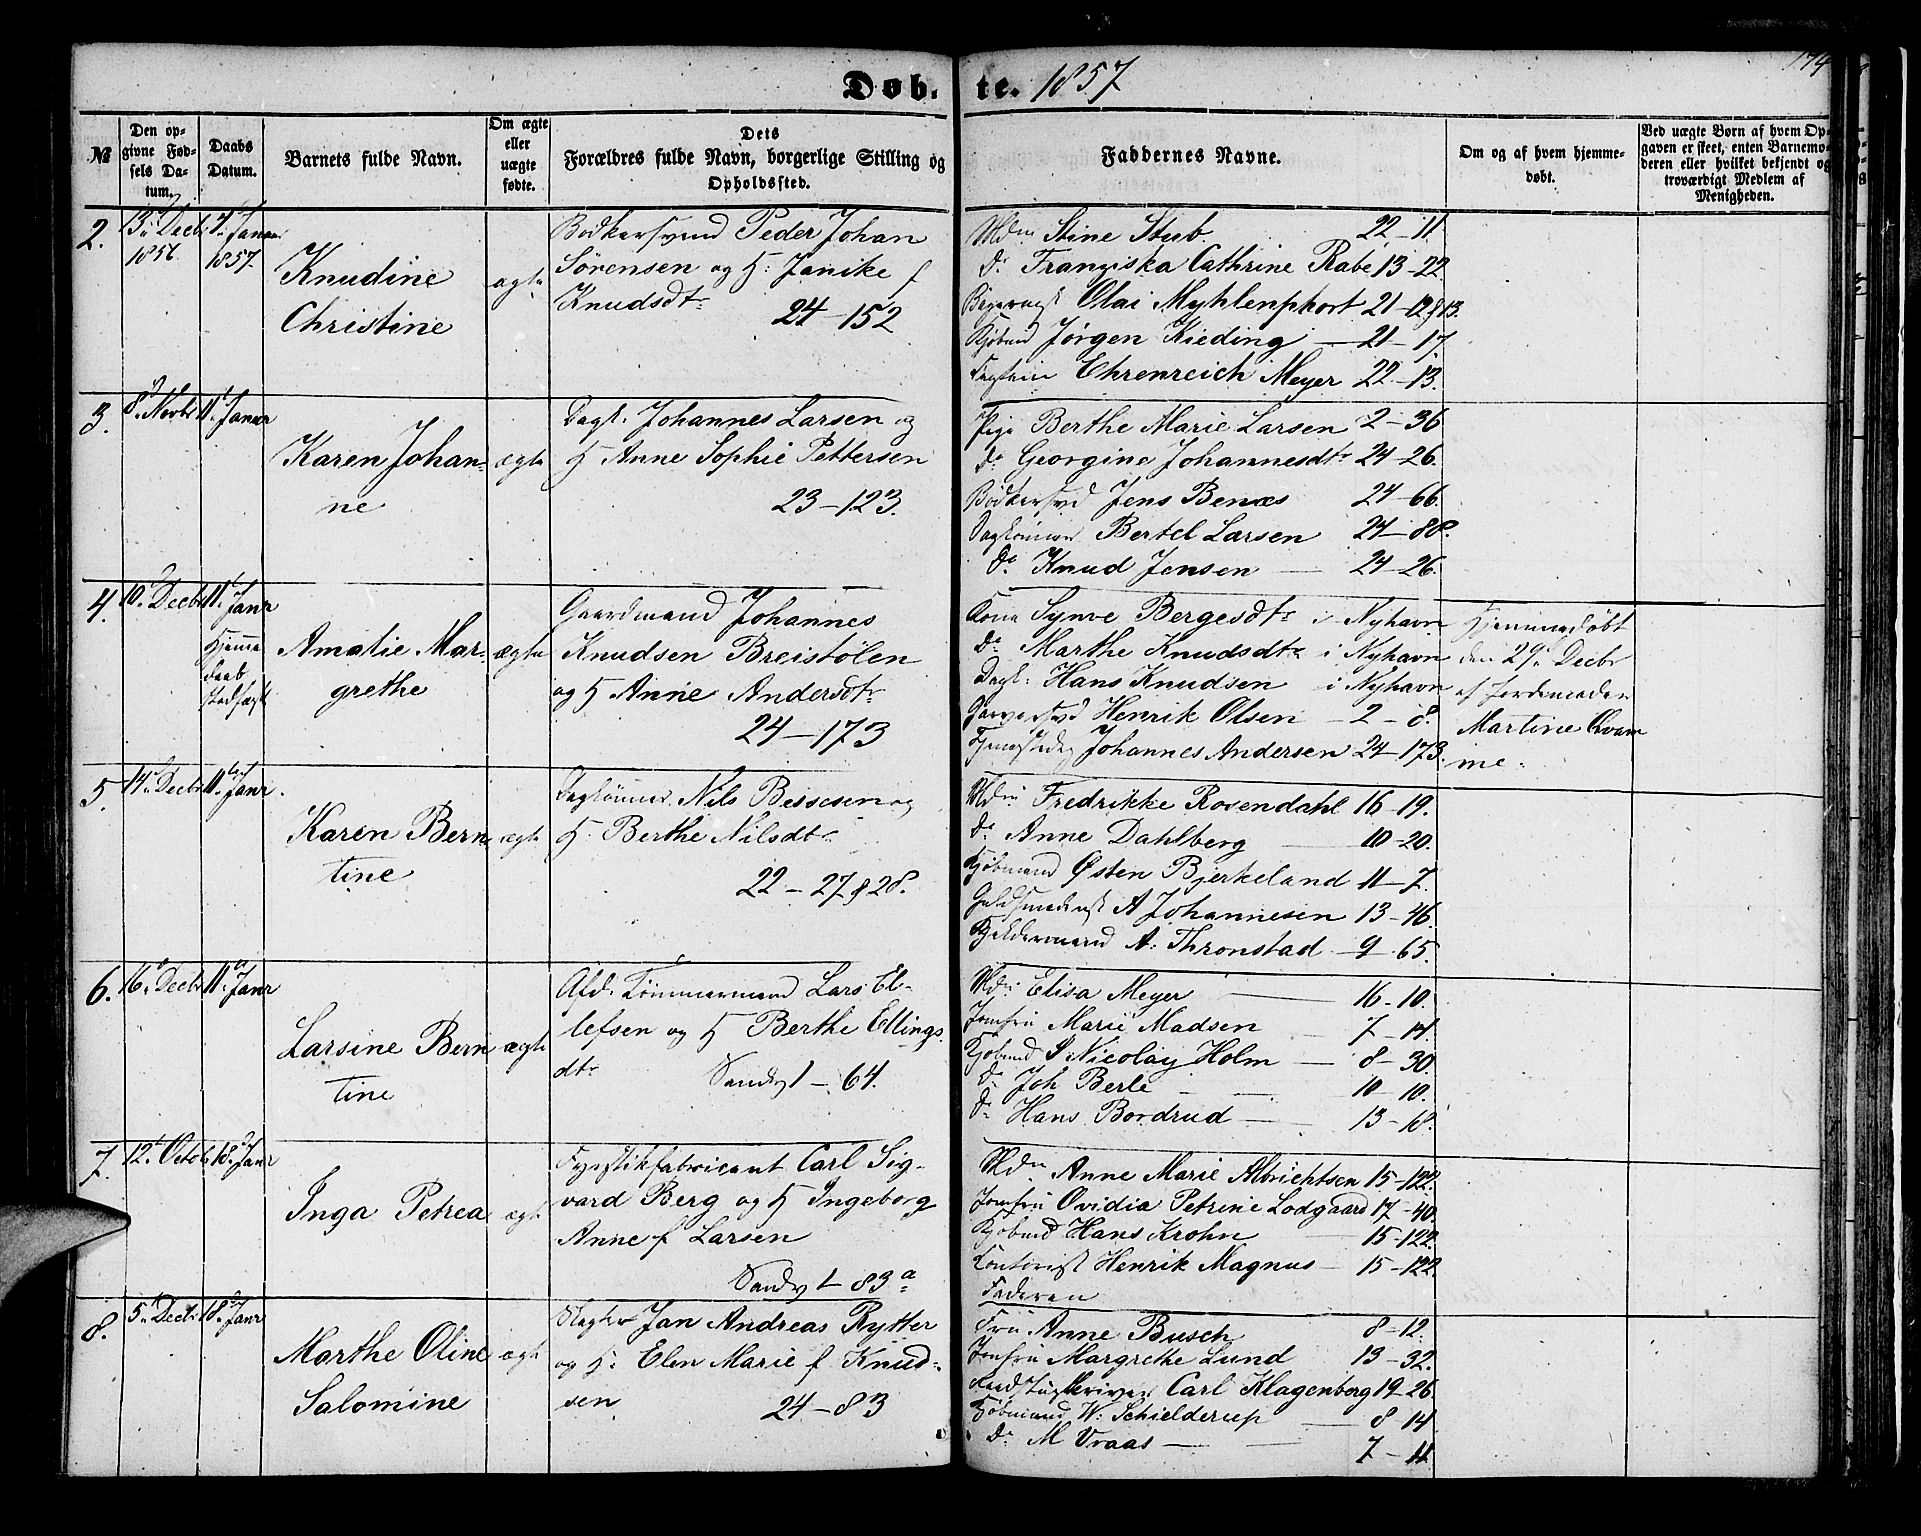 174
Døb. te. 1857
№
Den op-
givne Fød-
sels Da-
tum.
Daabs
Datum.
Barnets fulde Navn.
Om ægte
eller
uægte
fødte.
Dets
Forældres fulde Navn, borgerlige Stilling og
Opholdssted.
Faddernes Navne.
Om og af hvem hjemme-
døbt.
Ved uægte Børn af hvem Op-
gaven er skeet, enten Barnemo-
deren eller hvilket bekjendt og
troværdigt Medlem af
Menigheden.
2.
13. Decbr
1856
4. Januar
1857.
Knudine
Christine
ægte
Bødkersvend Peder Johan
Sørensen og H: Janike f
Knudsdtr
24-152
Mdm Stine Stub. 22-11
Do Franziska Cathrine Rabe 13-22
Olai Myhlenphort 21-12 & 13.
Kjøbmd Jørgen Kieding - 21-17
Ehrenreich Meyer 22-13.
3.
8. Novbr
11. Januar
Karen Johan-
ne
ægte
Dagl. Johannes Larsen og
H Anne Sophie Pettersen
23-123.
Pige Berthe Marie Larsen 2-36
Do Georgine Johannesdtr 24-26.
Bødkersvd Jens Benæs 24-66.
Daglønner Bertel Larsen 24-88.
Do Knud Jensen 24-26.
4.
10. Decbr
11. Janr
Hjemme
daab
stadfæst
Amalie Mar-
grethe
ægte
Gaardmand Johannes
Knudsen Breistølen
og H Anne Andersdtr
24-173
Kone Synve Bergesdtr i Nyhavn
Do Marthe Knudsdtr i Nyhavn
Dagl: Hans Knudsen i Nyhavn
Garversvd Henrik Olsen - 2-8.
Johannes Andersen 24-173.
Hjemmedøbt
den 29. Decbr
af Jordemoder
Martine Qvam
me.
5.
14. Decbr
11. Janr.
Karen Bern
tine
ægte
Daglønner Nils Bessesen og
H. Berthe Nilsdtr
22-27 & 28.
Mdm Fredrikke Rosendahl 16-19.
Do Anne Dahlberg 10-20.
Kjøbmand Østen Bjerkeland 11-7.
A Johannesen 13-46.
A. Thronstad - 9-65.
6.
16. Decbr
11. Janr
Larsine Bern
tine
ægte
Afd. Tømmermand Lars El-
lefsen og H Berthe Ellings
dtr Sandv 1-64.
Mdm Elisa Meyer 16-10.
Jomfru Marie Madsen 7-14.
Kjøbmd S Nicolay Holm 8-30.
Do Joh Berle 10-10.
Do Hans Bordrud 13-18.
7.
12. Octob
18. Janr
Inga Petrea
ægt.
Fyrstikfabricant Carl Sig-
vard Berg og H Ingeborg
Anne f Larsen
Sandv 1-83 a
Mdm Anne Marie Albrichtsen 15-122.
Jomfru Ovidia Petrine Lodgaard 17-40.
Kjøbmd Hans Krohn 15-122.
Contorist Henrik Magnus 15-122.
Faderen
8.
5. Decbr
18. Janr
Marthe Oline
Salomine
ægt
Slagter Jan Andreas Rytter
og H. Elen Marie f Knud-
sen 24-83
Fru Anne Busch 8-12.
Jomfru Margrethe Lund 13-32.
Raadstuskriver Carl Klagenberg 19-26.
Kjøbmand W. Schielderup 8-14
Do M Vraas 7-11.